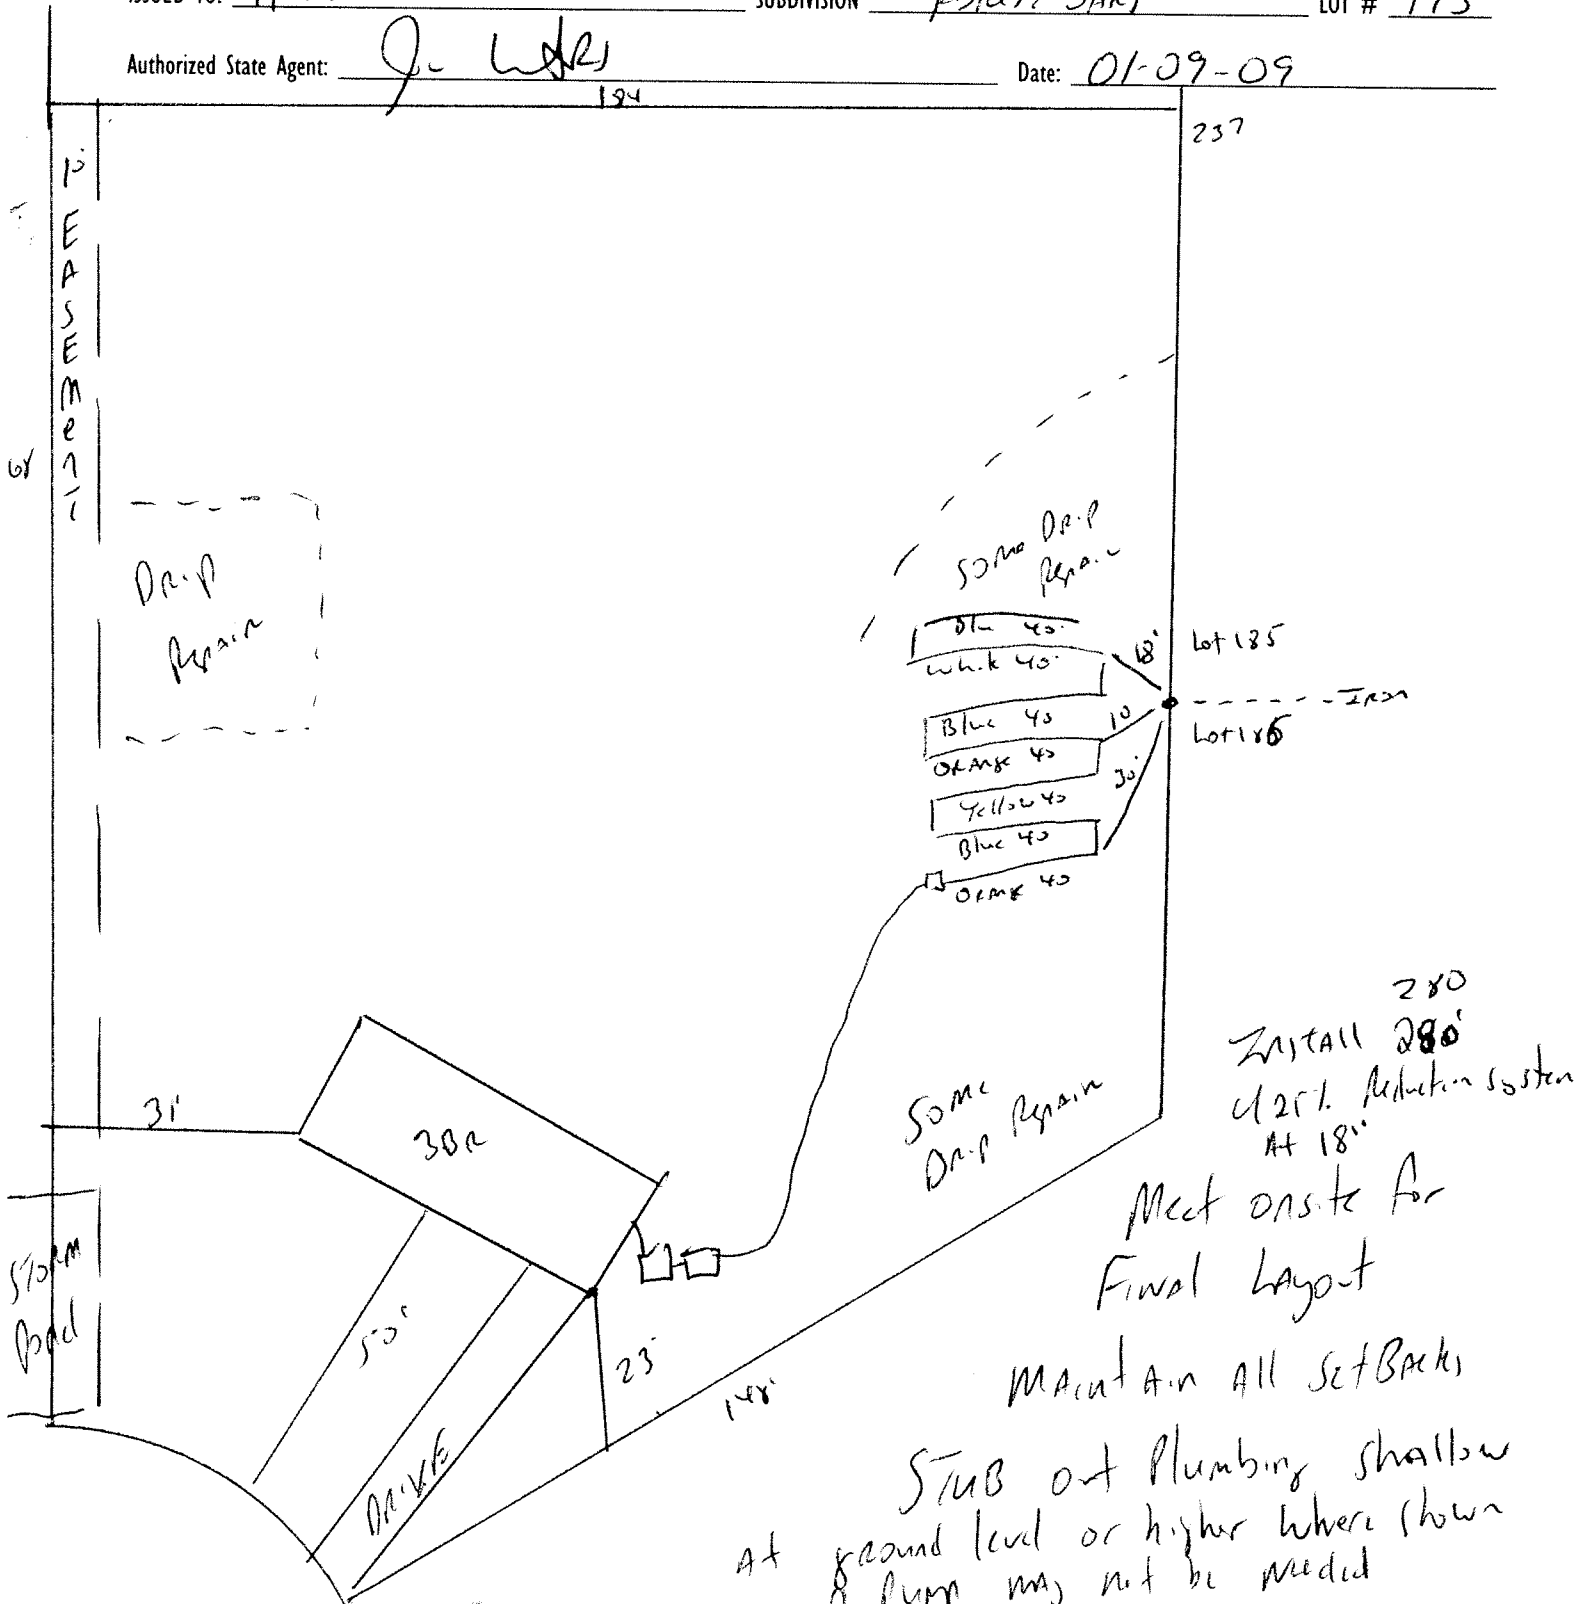 ISSUED TO:
SUBDIVISION
LOT #
Authorized State Agent:
Date: 01-09-09
184
237
10'
EASEMent
68
Drip
Repair
Some Drip
Repair
Blu 40'
White 40'
Blue 40
Orange 40
Yellow 40
Blue 40
Orange 40
18'
10
30'
Lot 185
Iron
Lot 186
280
Install 280'
of 25% Reduction system
At 18"
Some
Drip Repair
31'
3BR
Meet onsite for
Final Layout
Storm
Pond
50'
23'
148'
Maintain All SetBacks
DRIVE
STUB out Plumbing shallow
At ground level or higher where shown
a Pump may not be needed